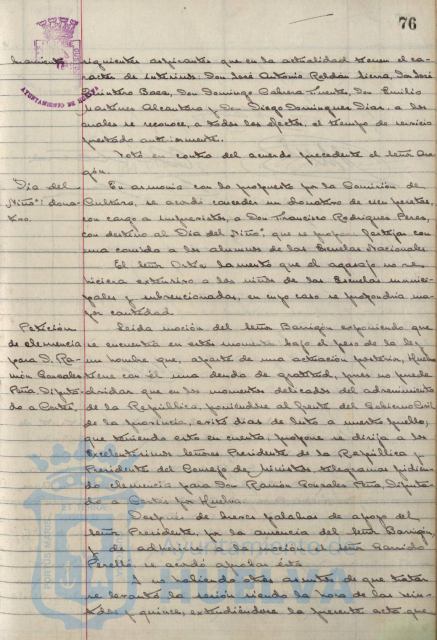 76
siguientes aspirantes que en la actualidad tienen el ca-
racter de interinos: Don José Antonio Roldán Sierra, Don José
Quintero Baea, Don Domingo Cabrera Fuentes, Don Emilio
Martínez Alcántara y Don Diego Domínguez Díaz, a los
cuales se reconoce, a todos los efectos, el tiempo de servicio
prestado anteriormente.
Votó en contra del acuerdo precedente el señor Ara-
gón.
Día del
Niño: dona-
tivo.
En armonía con lo propuesto por la Comisión de
Cultura, se acordó conceder un donativo de cien pesetas,
con cargo a Imprevistos, a Don Francisco Rodríguez Pérez,
con destino al "Día del Niño", que se propone festejar con
una comida a los alumnos de las Escuelas Nacionales
El señor Ortiz lamenta que el agasajo no se
hiciera extensivo a los niños de las Escuelas munici-
pales y subvencionadas, en cuyo caso se propondría ma-
yor cantidad
Petición
de clemencia
para D. Ra-
món González
Peña, Diputa-
do a Cortes.
Leída moción del señor Barrigón exponiendo que
se encuentra en estos momentos bajo el peso de la ley
un hombre que, aparte de una actuación posterior, Huelva
tiene con él una deuda de gratitud, pues no puede
olvidar que en los momentos delicados del advenimiento
de la República, poniéndose al frente del Gobierno Civil
de la provincia, evitó días de luto a nuestro pueblo;
que teniendo esto en cuenta, propone se dirija a los
Excelentísimos señores Presidente de la República y
Presidente del Consejo de Ministros telegramas pidien-
do clemencia para Don Ramón González Peña, Diputa-
do a Cortes por Huelva.
Después de breves palabras de apoyo del
señor Presidente, por la ausencia del señor Barrigón
y de adherirse a la moción el señor Garrido
Perelló, se acordó aprobar ésta
Y no habiendo otros asuntos de que tratar
se levantó la sesión siendo la hora de las vein-
tidós y quince, extendiéndose la presente acta que